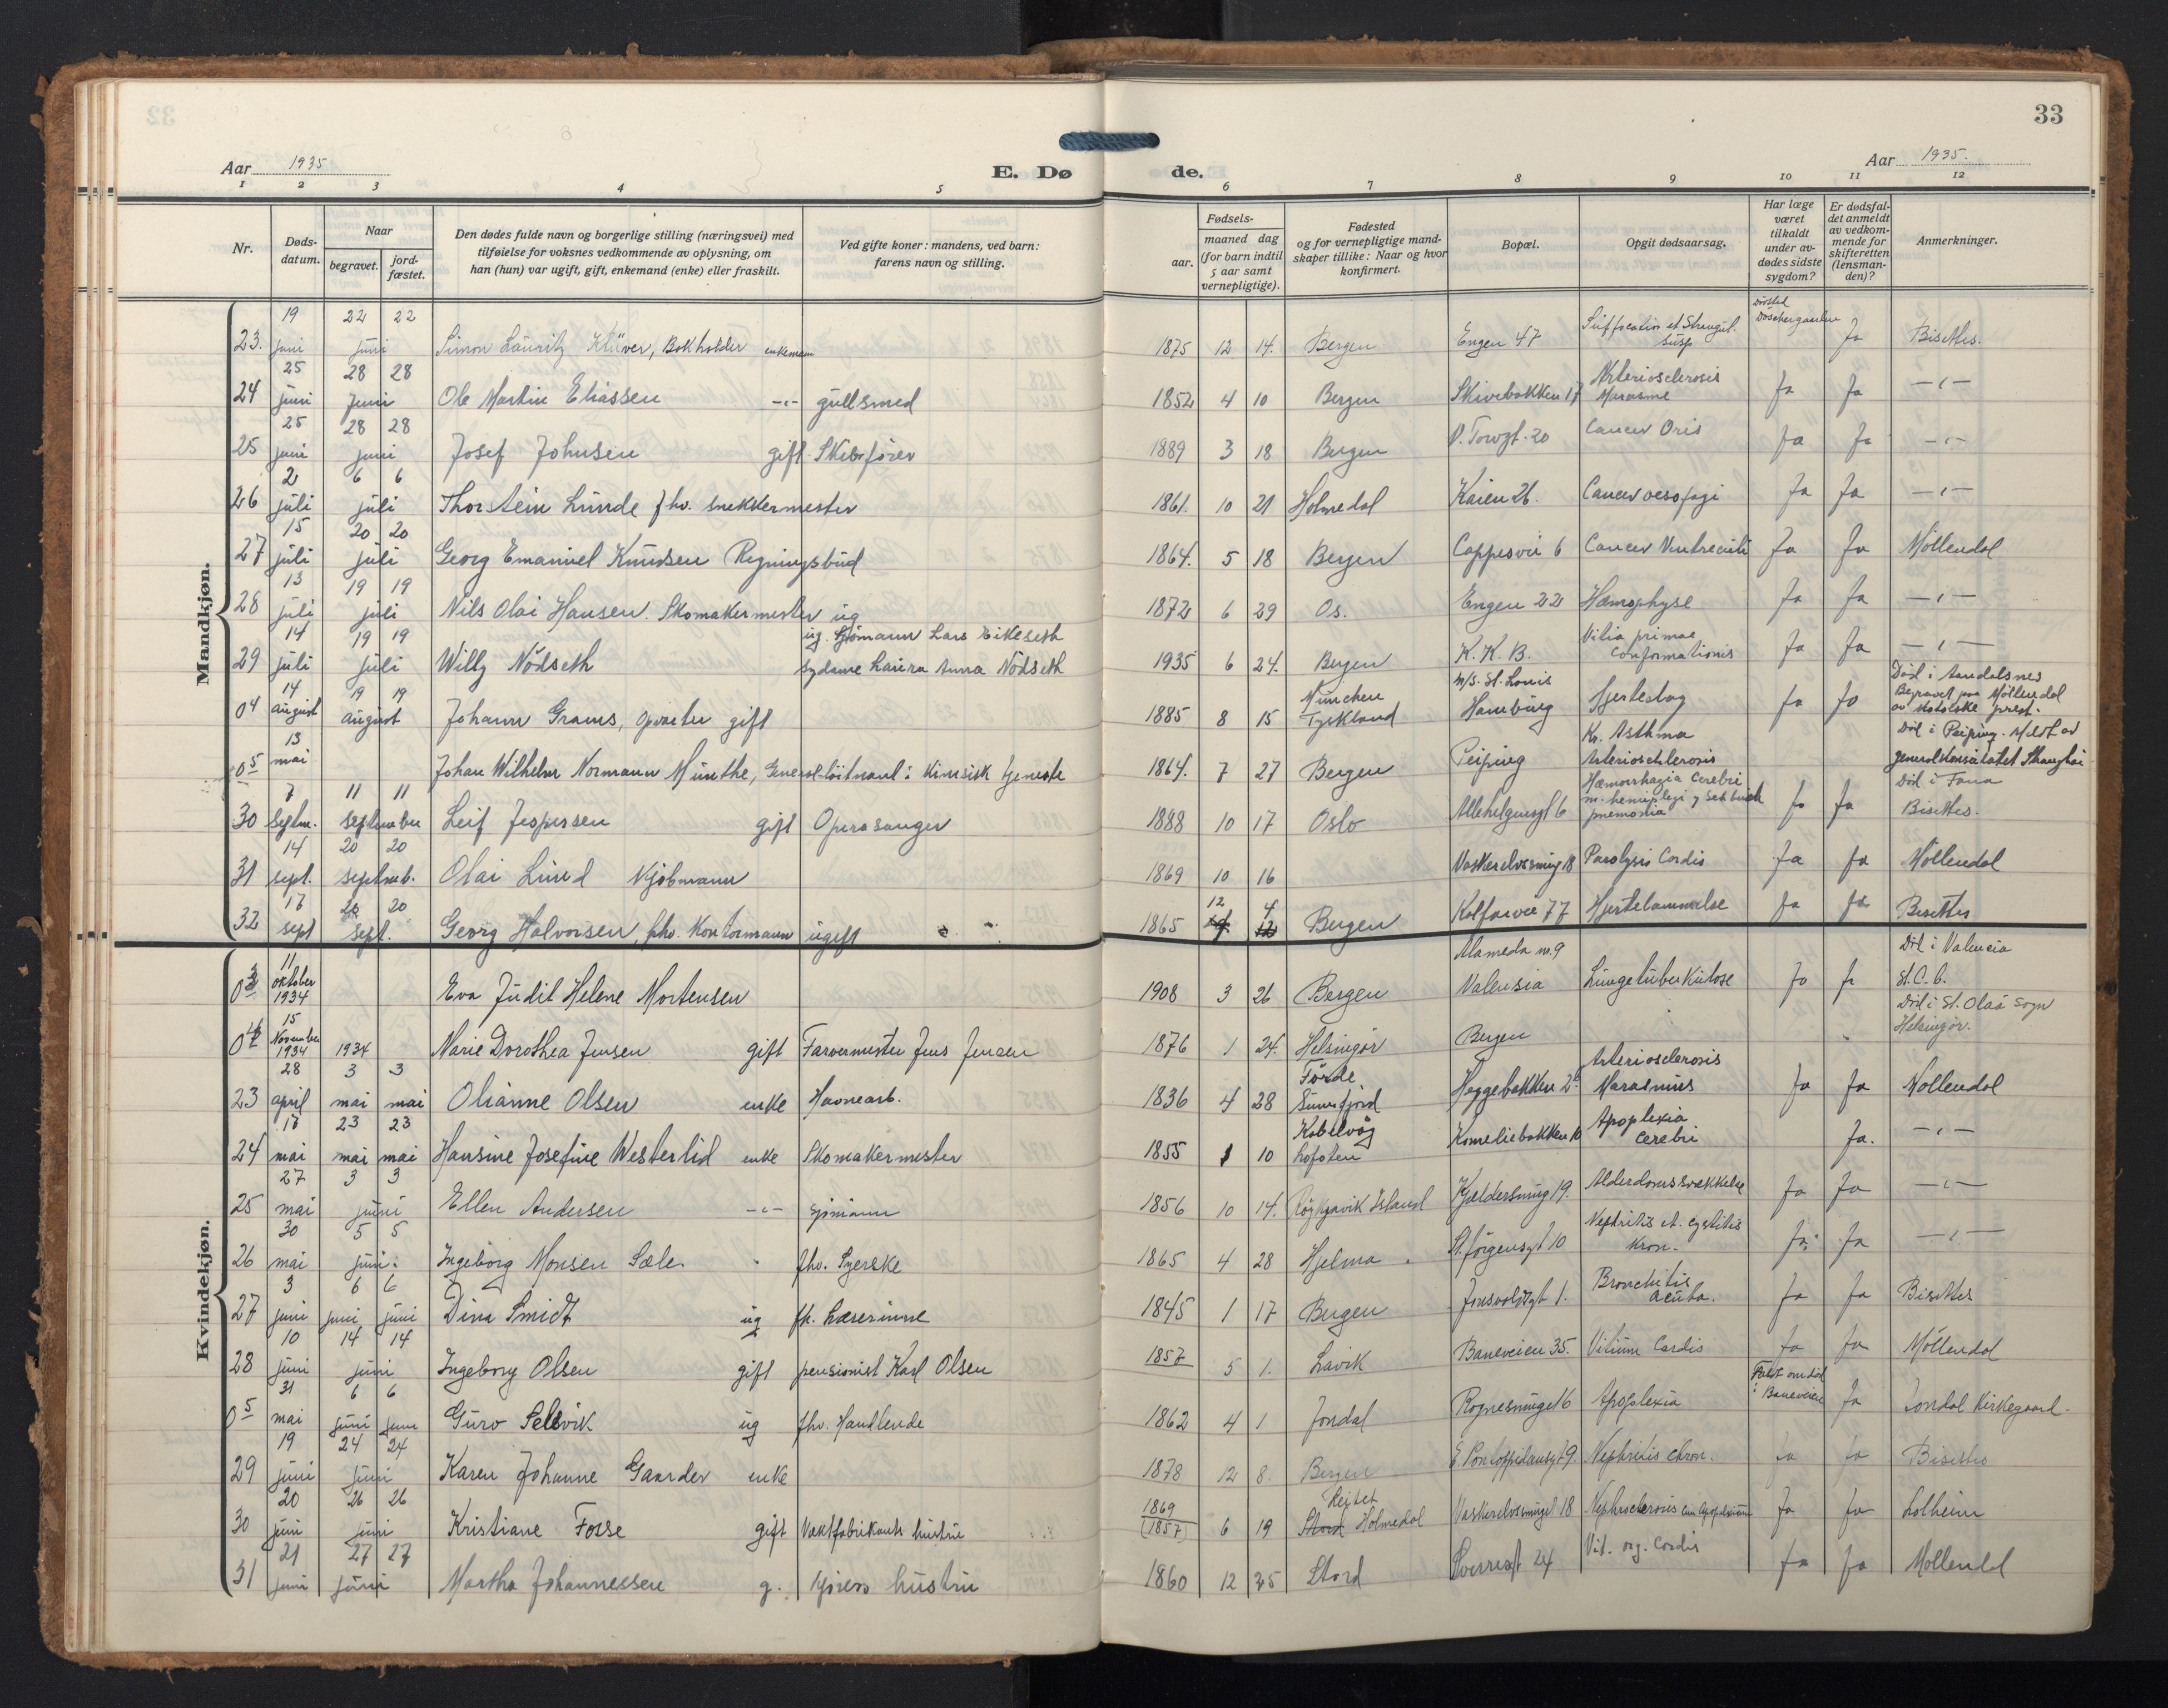 33
Aar 1935
E. Dø de.
Aar 1935.
1 2 3 4 5 6 7 8 9 10 11 12
Nr.
Døds-
datum.
Naar
begravet.
jord-
fæstet.
Den dødes fulde navn og borgerlige stilling (næringsvei) med
tilføielse for voksnes vedkommende av oplysning, om
han (hun) var ugift, gift, enkemand (enke) eller fraskilt.
Ved gifte koner: mandens, ved barn:
farens navn og stilling.
Fødsels-
aar.
maaned dag
(for barn indtil
5 aar samt
vernepligtige).
Fødested
og for vernepligtige mand-
skaper tillike: Naar og hvor
konfirmert.
Bopæl.
Opgit dødsaarsag.
Har læge
været
tilkaldt
under av-
dødes sidste
sygdom?
Er dødsfal-
det anmeldt
av vedkom-
mende for
skifteretten
(lensman-
den)?
Anmerkninger.
Mandkjøn.
23. 19 juni 22 22 juni Simon Lauritz Klüver, Bokholder enkemann 1875 12 14. Bergen Engen 47 Suffocation et Strangul. susp Ja Bisettes.
24 25 juni 28 28 juni Ole Martin Eliassen -"- gullsmed 1852 4 10 Bergen Skivebakken 17 Arteriosclerosis Marasme Ja Ja -"-
25 25 juni 28 28 juni Josef Johnsen gift Skibsfører 1889 3 18 Bergen V. Torvgt. 20 Cancer Oris Ja Ja -"-
26 2 juli 6 6 juli Thorstein Lunde fhv. snekkermester 1861. 10 21 Holmedal Kaien 26. Cancer oesofagi Ja Ja -"-
27 15 juli 20 20 juli Georg Emanuel Knudsen Regningsbud 1864. 5 18 Bergen Cappesvei 6 Cancer Ventriculi Ja Ja Möllendal
28 13 juli 19 19 juli Nils Olai Hansen. Skomakermester ug 1872 6 29 Os. Engen 22 Hæmophyse Ja Ja -"-
29 14 juli 19 19 juli Willy Nödseth ug. Sjömann Lars Eikeseth
sydame Laura Anna Nödseth 1935 6 24. Bergen K. K. B. Vitia primae conformationis Ja Ja -"-
04 14 august 19 19 august Johann Grams, opvarter gift 1885 8 15 München Tyskland M/S. St. Louis Hamburg Hjerteslag Ja Ja Död i Aandalsnes
Begravet paa Möllendal
av katolske prest.
05 13 mai Johan Wilhelm Normann Munthe, General-löitnant i kinesisk tjeneste 1864. 7 27 Bergen Peiping Kr. Asthma Arteriosclerosis Död i Peiping. Meldt av
generalkonsulatet Shanghai
30 7 Septm. 11 11 september Leif Jespersen gift Operasanger 1888 10 17 Oslo Allehelgensgt 6 Hæmorrhagia Cerebri m. hemiplegi pnemonia Ja Ja Död i Fana
Bisettes.
31 14 sept. 20 20 septemb. Olai Lund Kjöbmann 1869 10 16 Vaskerelvsmug 18 Paralysis Cordis Ja Ja Möllendal
32 17 sept 20 20 sept. Georg Halvorsen, fhv. Kontormann ugift 1865 12 4 Bergen Kalfarvei 77 Hjertelammelse Ja Ja Bisettes
Kvindekjøn.
03 11 oktober 1934 Eva Judit Helene Mortensen 1908 3 26 Bergen Alameda no. 9 Valensia Lungetuberkulose Ja Ja Död i Valencia
St. C. B.
04 15 November 1934 1934 Marie Dorothea Jensen gift Farvermester Jens Jensen 1876 1 24. Helsingör Bergen Död i St. Olai Sogn
Helsingör.
23 28 april 3 mai 3 mai Olianne Olsen enke Havnearb. 1836 4 28 Förde Sunnfjord Heggebakken 2b Arteriosclerosis Marasmus Ja Ja Möllendal
24 17 mai 23 mai 23 mai Hansine Josefine Westerlid enke Skomakermester 1855 1 10 Kabelvåg Lofoten Korneliebakken 10 Apoplexia cerebri Ja. -"-
25 27 mai 3 3 juni Ellen Andersen -"- sjömann 1856 10 14. Röykjavik Island Kjeldersmug 19. Alderdomssvekkelse Ja Ja -"-
26 30 mai 5 5 juni Ingeborg Monsen Sæle. " fhv. Syerske 1865 4 28 Hjelma St. Jörgensgt 10 Nephritis et. cystitis kron. Ja Ja -"-
27 3 juni 6 juni 6 juni Dina Smidt ug fh. Lærerinne 1845 1 17 Bergen Jonsvollsgt 1. Bronchitis acuta. Ja Ja Bisettes
28 10 juni 14 14 juni Ingeborg Olsen gift pensionist Karl Olsen 1857 5 1. Lavik Baneveien 35. Vitium Cordis Ja Ja Möllendal
05 31 mai 6 juni 6 juni Guro Selsvik ug fhv. Handlende 1862 4 1 Jondal Rognesmuget 6 Apoplexia Falt om död i Baneveien Ja Jondal Kirkegaard.
29 19 juni 24 24 juni Karen Johanne Gaarder enke 1878 12 8. Bergen E. Pontoppidansgt 9. Nephritis chron. Ja Ja Bisettes
30 20 juni 26 26 juni Kristiane Fosse gift Vaktfabrikants hustru 1869 (1857) 6 19 Stord Holmedal Vaskerelvsmuget 18 Nephrosclerosis cum Apoplexiam Ja Ja Solheim
31 21 juni 27 27 juni Martha Johannessen g. kjörers hustru 1860 12 25 Stord Sverresgt 24 Vit. org. Cordis Ja Ja Möllendal